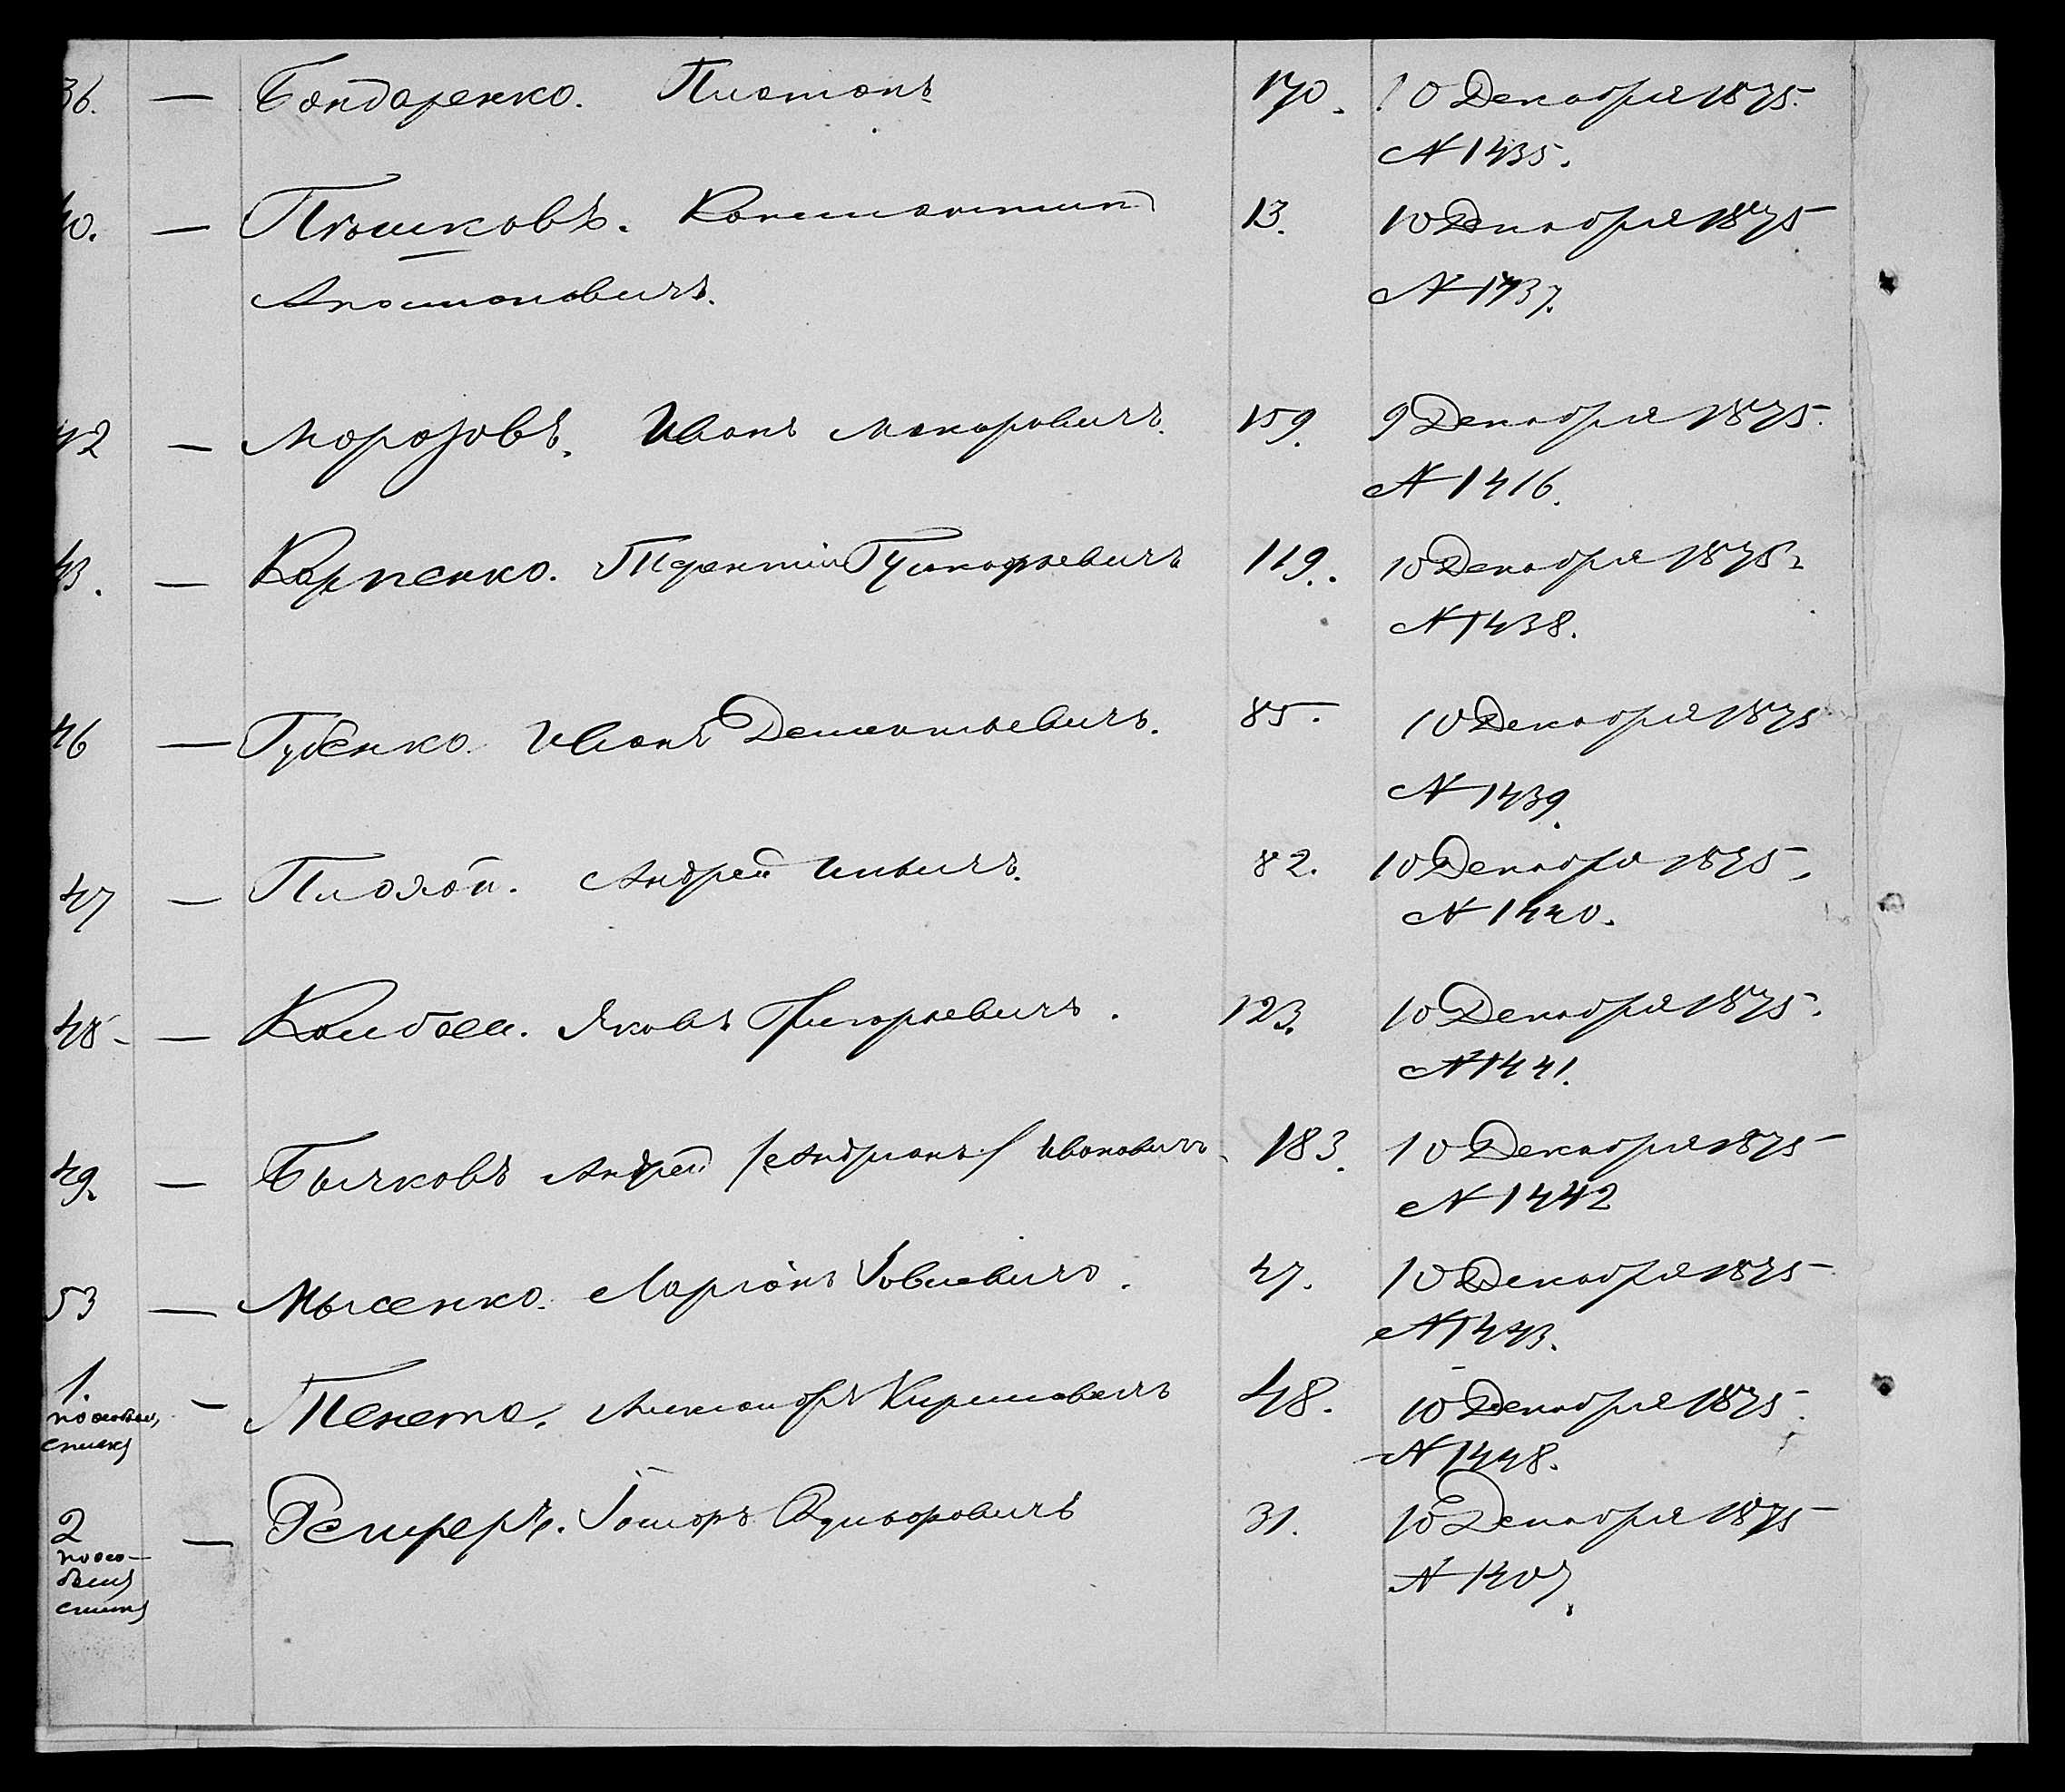 36. — Бондаренко. Платонъ 170. 10 Декабря 1875.
№ 1435.
40. — Пѣшковъ. Константинъ 13. 10 Декабря 1875
Апполоновичъ. № 1437.
42 — Морозовъ. Иванъ Макаровичъ. 159. 9 Декабря 1875.
№ 1416.
43. — Карпенко. Терентій 119. 10 Декабря 1875
№ 1438.
46 — Губенко. Иванъ Дементьевичъ. 85. 10 Декабря 1875
№ 1439.
47 — Плохой. Андрей Ильичъ. 82. 10 Декабря 1875,
№ 1440.
48 — Яковъ Григорьевичъ. 123. 10 Декабря 1875.
№ 1441.
49. — Бычковъ Андрей /Андріанъ/ Ивановичъ. 183. 10 Декабря 1875
№ 1442
53 — Мысенко. Ларіонъ Іовлевичъ. 47. 10 Декабря 1875
№ 1443.
1. — Тенета. Александръ Кириловичъ 48. 10 Декабря 1875.
по особому
списку № 1448.
2 — 31. 10 Декабря 1875
по осо-
бому № 1407.
списку